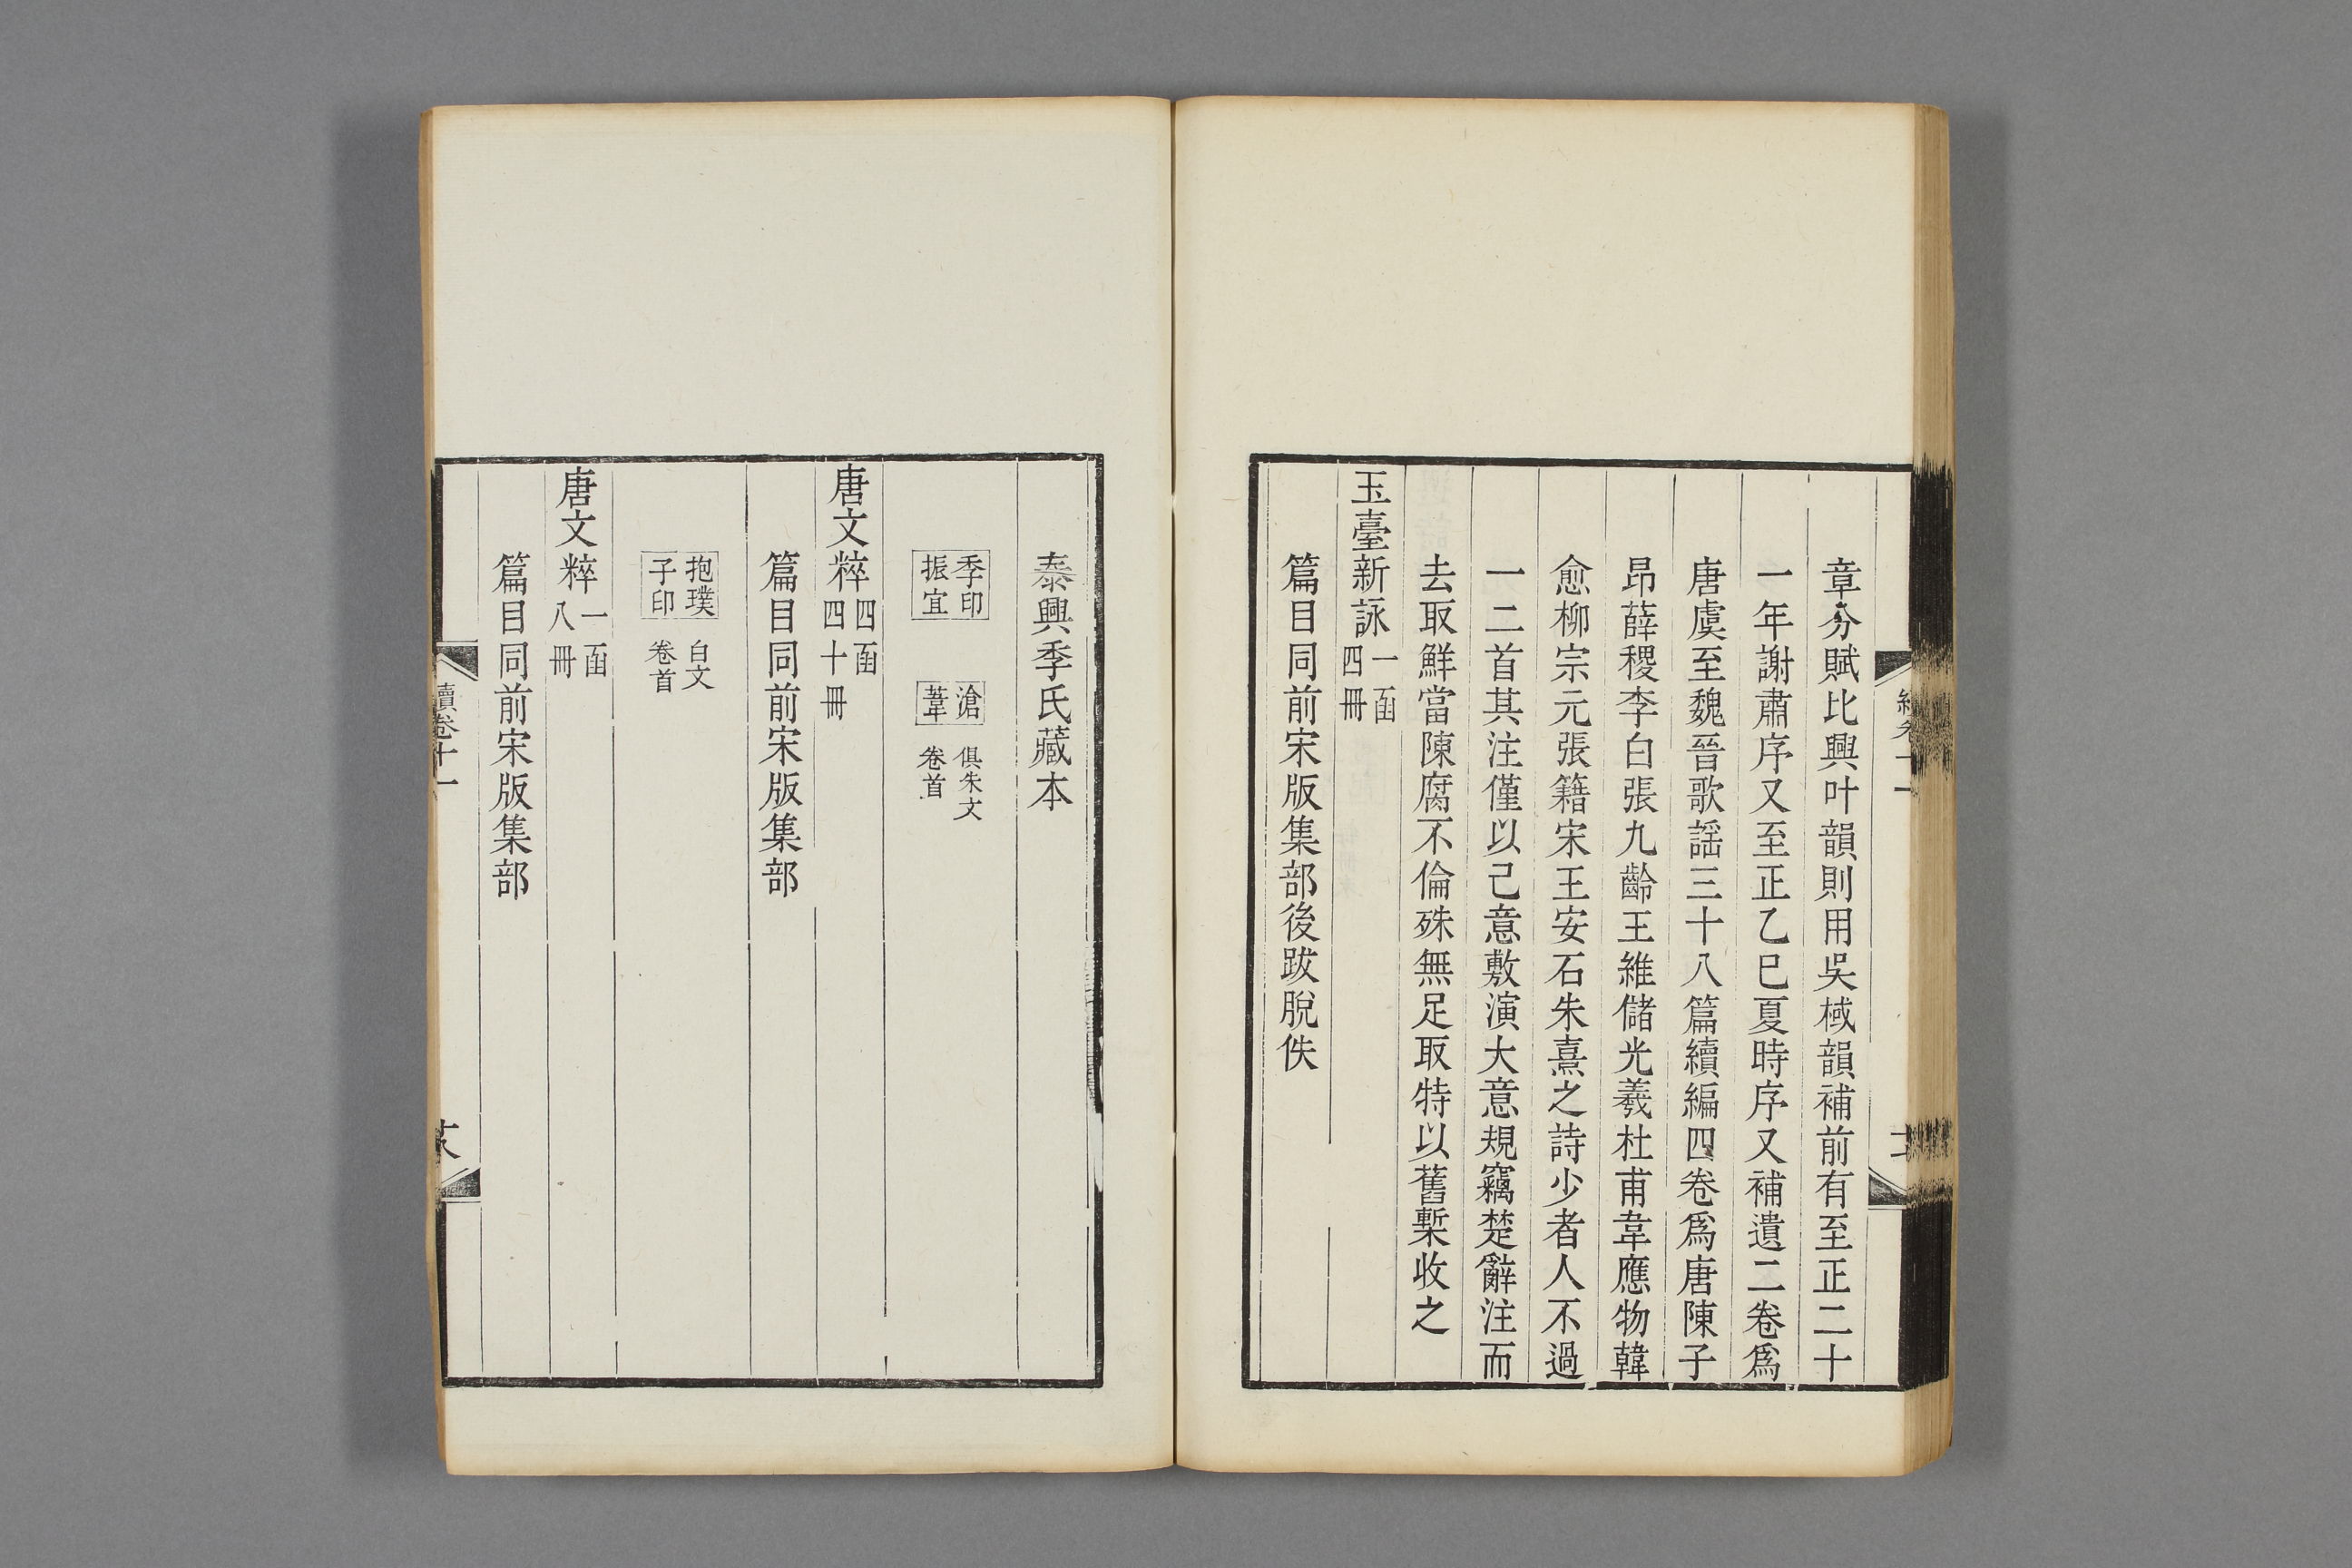 章分賦比興叶韻則用吳棫韻補前有至正二十
一年謝肅序又至正乙巳夏時序又補遺二卷爲
唐虞至魏晉歌謡三十八篇續編四卷爲唐陳子
昂薛稷李白張九齡王維儲光羲杜甫韋應物韓
愈柳宗元張籍宋王安石朱熹之詩少者人不過
一二首其注僅以己意敷演大意規竊楚辭注而
去取鮮當陳腐不倫殊無足取特以舊槧收之
玉臺新詠 一函四冊
篇目同前宋版集部後跋脫佚
泰興季氏藏本
季印振宜 滄葦 俱朱文卷首
唐文粹 四函四十冊
篇目同前宋版集部
抱璞子印 白文卷首
唐文粹 一函八冊
篇目同前宋版集部
續卷十一